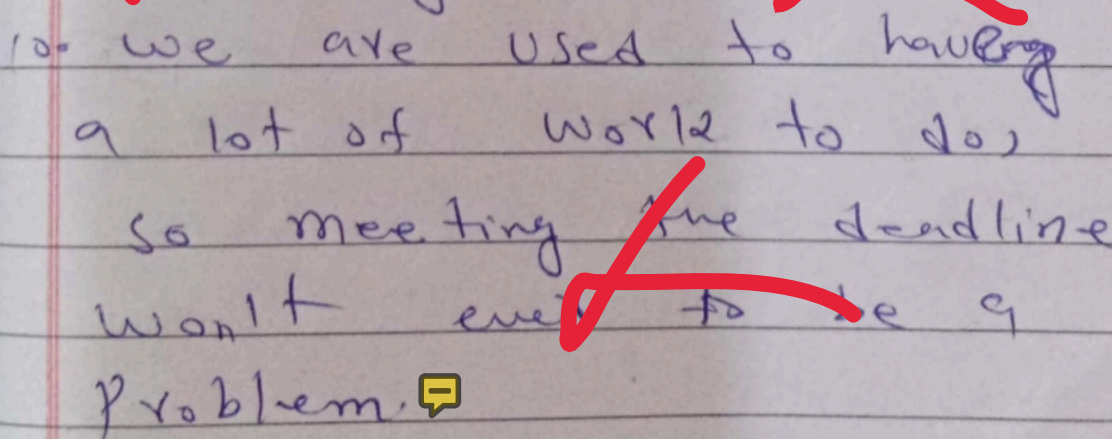 10. we are used to having
a lot of work to do,
so meeting the deadline
won't ever to be a
problem.